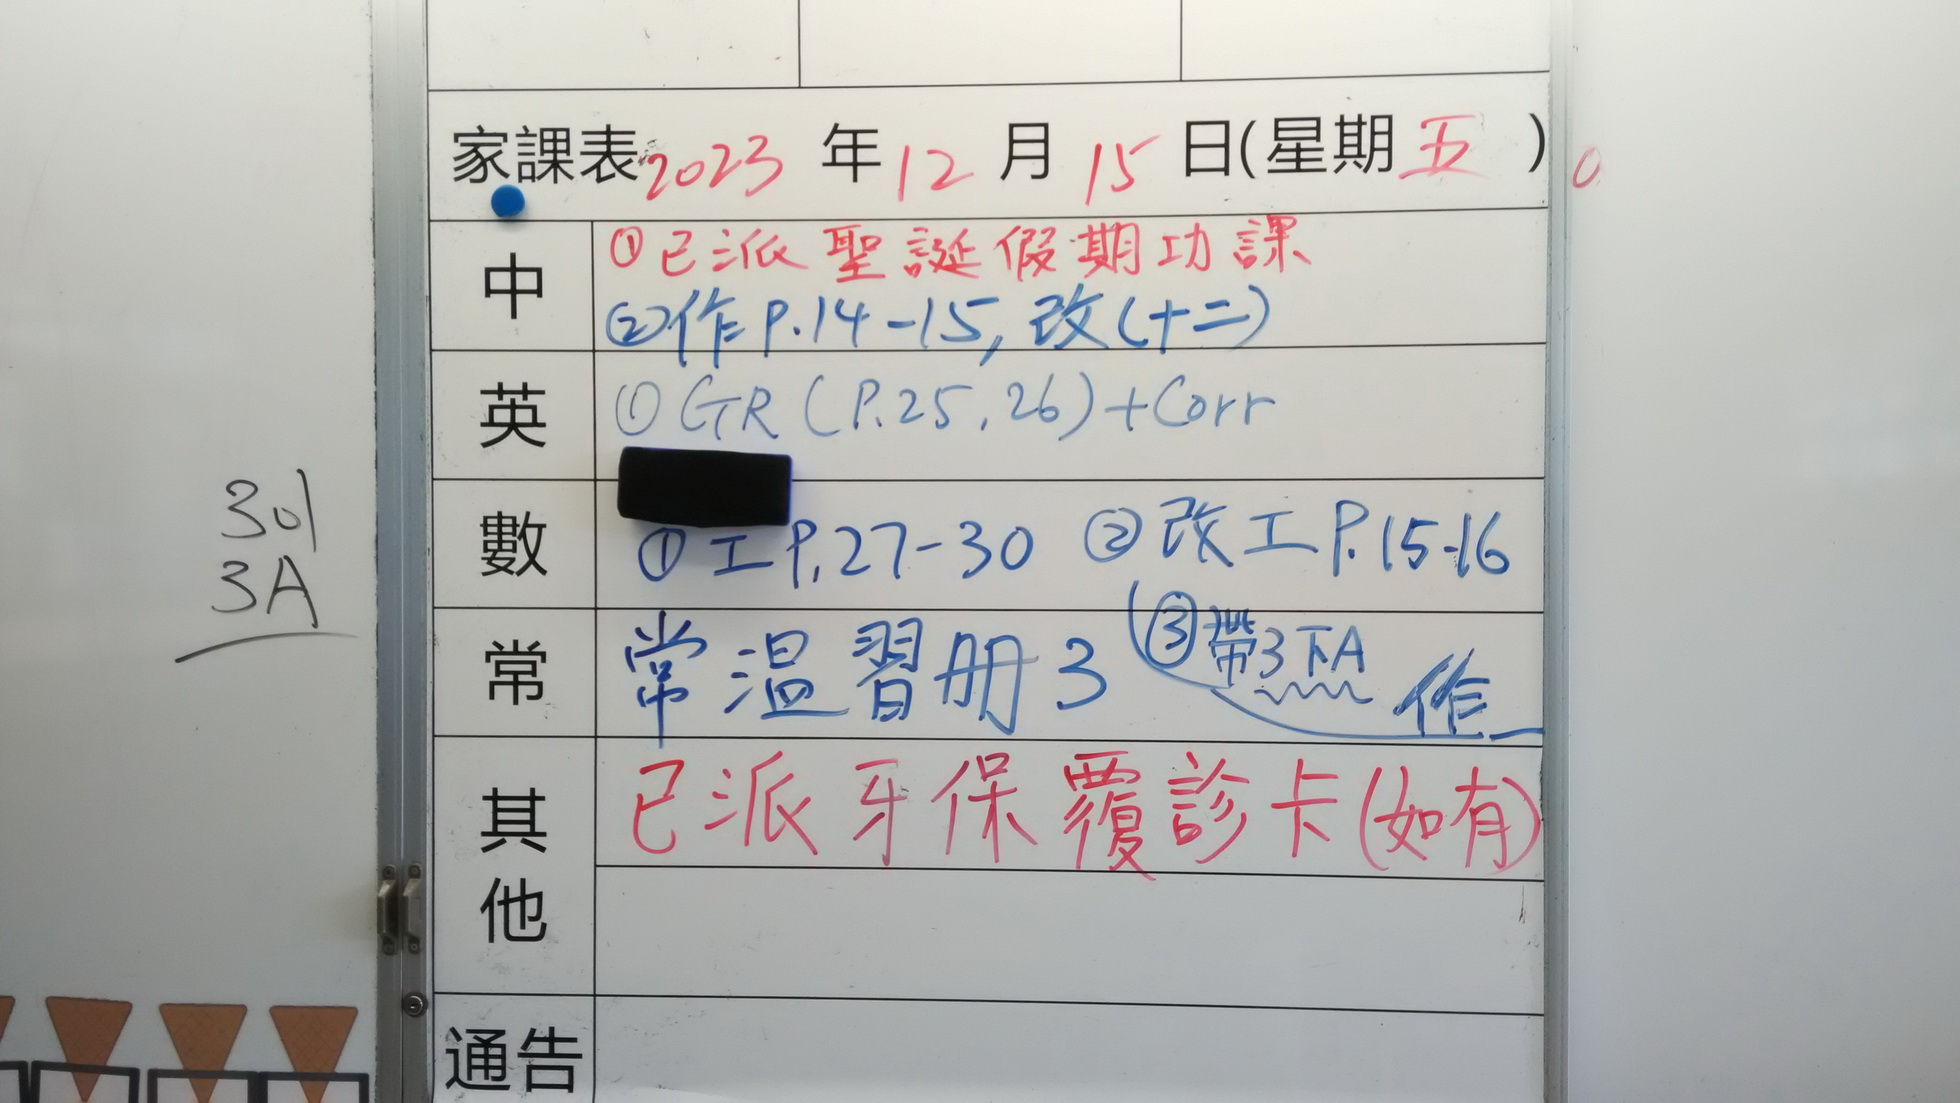 家課表 2023 年 12 月 15 日(星期 五 )
中
①已派聖誕假期功課
②作P.14-15, 改(十二)
英
①GR (P.25, 26)+Corr
數
①工P.27-30 ②改工P.15-16
③帶3下A作
常
常溫習册3
其他
已派牙保覆診卡(如有)
通告
301
3A